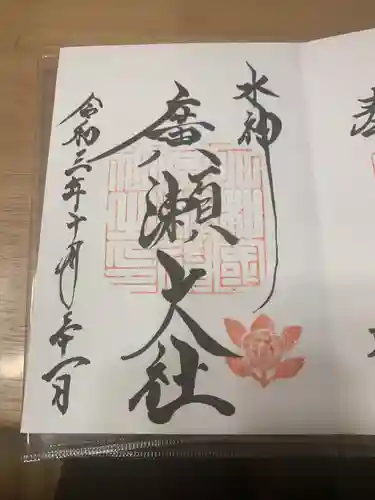 水神
廣瀬大社
令和三年十月三十一日
奉